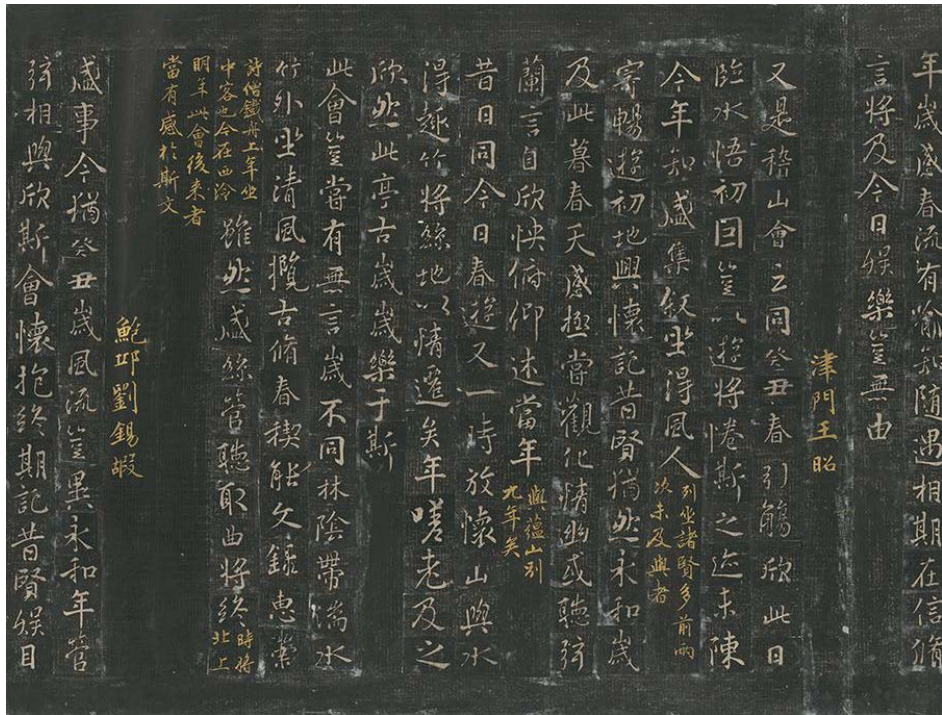 年歲感春流有喻知隨遇相期在信脩
言將及今日娛樂豈無由
津門王昭
又是嵇山會之同癸丑春引觴欣此日
臨水悟初因豈以遊將惓斯之迹未陳
今年知盛集叙坐得風人列坐諸賢多前兩
次未及與者
寄暢遊初地興懷記昔賢猶然永和歲
及此暮春天盛極當觀化情幽或聽弦
蘭言自欣快俯仰述當年與蘊山別
九年矣
昔日同今日春遊又一時放懷山與水
得趣竹將絲地以情遷矣年嗟老及之
欣然此亭古歲歲樂于斯
此會豈嘗有無言歲不同林陰帶湍水
竹外坐清風攬古脩春稧能文錄惠
詩僧鐵舟上年坐
中客也今在西泠
雖然盛絲管聽取曲將終時將
北上
明年此會後來者
當有感於斯文
鮑邱劉錫嘏
盛事今猶癸丑歲風流豈異永和年管
弦相與欣斯會懷抱終期記昔賢娛目